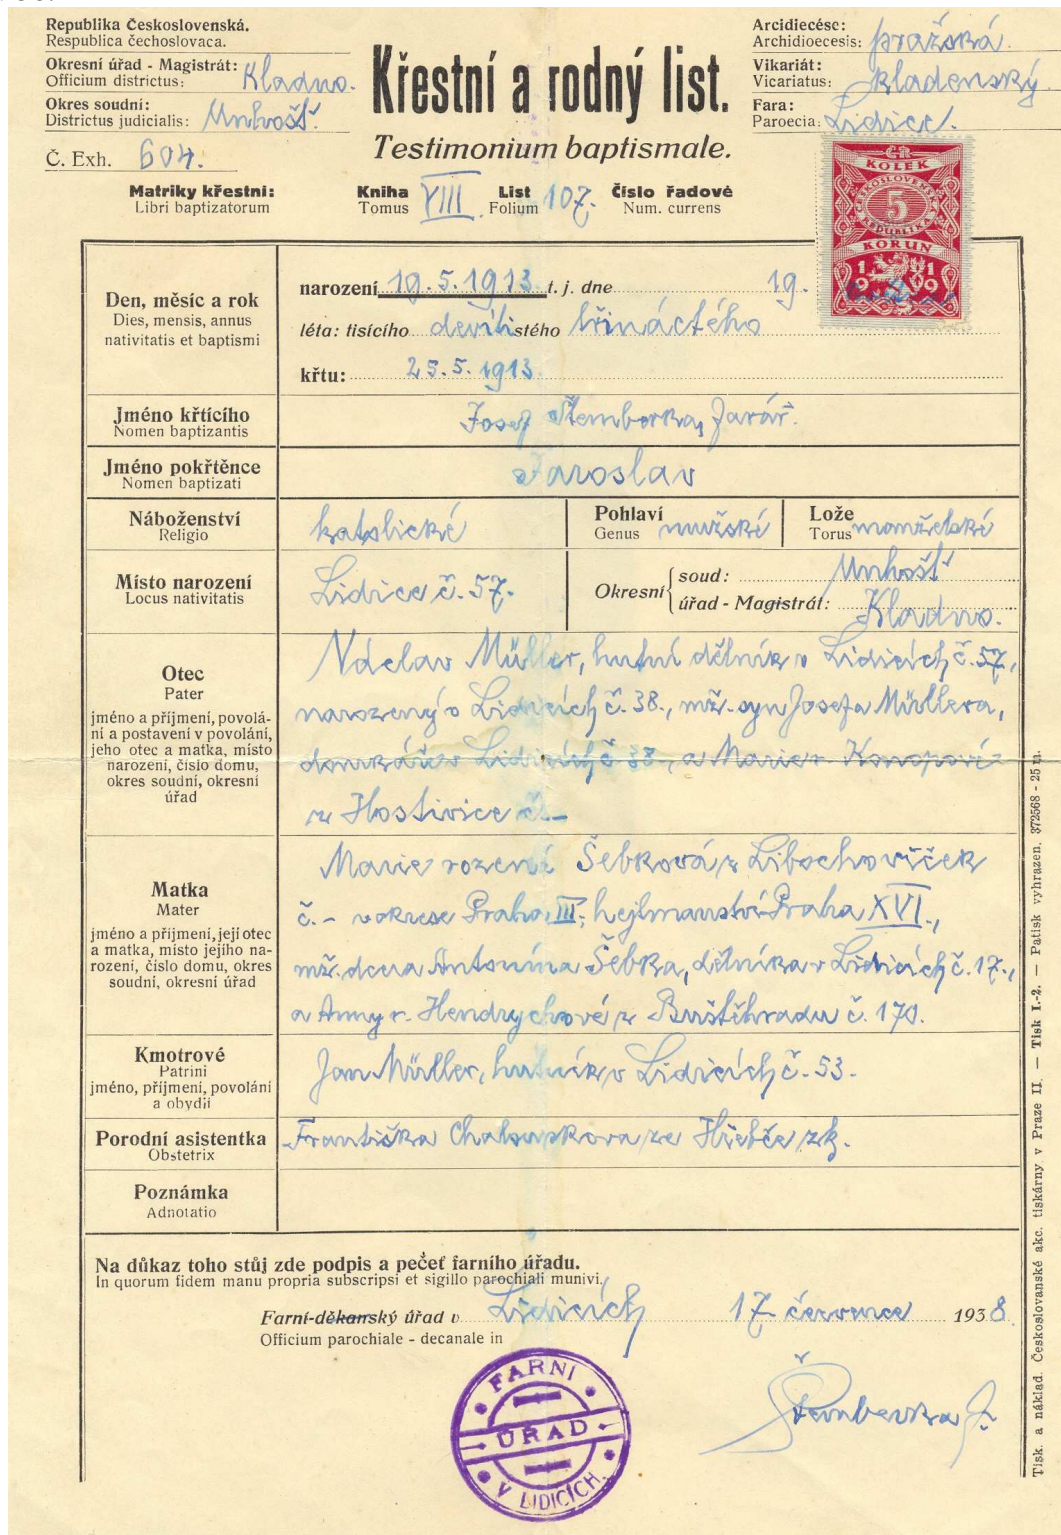 Republika Československá.
Respublica čechoslovaca.
Okresní úřad - Magistrát:
Officium districtus: Kladno.
Okres soudní:
Districtus judicialis: Unhošť.
Č. Exh. 604.
Křestní a rodný list.
Testimonium baptismale.
Arcidiecése:
Archidioecesis: pražská.
Vikariát:
Vicariatus: kladenský
Fara:
Paroecia: Lidice.
Matriky křestní:
Libri baptizatorum
Kniha VIII. List 107. Číslo řadové
Tomus Folium Num. currens
ČR
KOLEK
ČESKOSLOVENSKÁ
5
REPUBLIKA
KORUN
1919
Den, měsíc a rok
Dies, mensis, annus
nativitatis et baptismi
narození 19. 5. 1913 t. j. dne 19.
léta: tisícího devíti stého třináctého
křtu: 25. 5. 1913.
Jméno křtícího
Nomen baptizantis
Josef Štemberka, farář.
Jméno pokřtěnce
Nomen baptizati
Jaroslav
Náboženství
Religio
katolické
Pohlaví
Genus mužské
Lože
Torus manželské
Místo narození
Locus nativitatis
Lidice č. 57.
Okresní
soud: Unhošť
úřad - Magistrát: Kladno.
Otec
Pater
jméno a příjmení, povolá-
ní a postavení v povolání,
jeho otec a matka, místo
narození, číslo domu,
okres soudní, okresní
úřad
Václav Müller, hutní dělník v Lidicích č. 57,
narozený v Lidicích č. 38., mž. syn Josefa Müllera,
domkáře v Lidicích č. 38., a Marie r. Konopové
z Hostivice č. –
Matka
Mater
jméno a příjmení, její otec
a matka, místo jejího na-
rození, číslo domu, okres
soudní, okresní úřad
Marie rozená Šebková z Libochoviček
č. – v okrese Praha III., hejtmanství Praha XVI.,
mž. dcera Antonína Šebka, dělníka v Lidicích č. 17.,
a Anny r. Hendrychové z Buštěhradu č. 170.
Kmotrové
Patrini
jméno, příjmení, povolání
a obydlí
Jan Müller, hutník v Lidicích č. 53.
Porodní asistentka
Obstetrix
Františka Chaloupkova ze Hřebče zk.
Poznámka
Adnotatio
Na důkaz toho stůj zde podpis a pečeť farního úřadu.
In quorum fidem manu propria subscripsi et sigillo parochiali munivi.
Farní-děkanský úřad v Lidicích 17. července 1938.
Officium parochiale - decanale in
FARNÍ
ÚŘAD
V LIDICÍCH
Štemberka J.
Tisk. a náklad. Československé akc. tiskárny v Praze II. — Tisk I.-2. — Patisk vyhrazen. 372568 - 25 m.